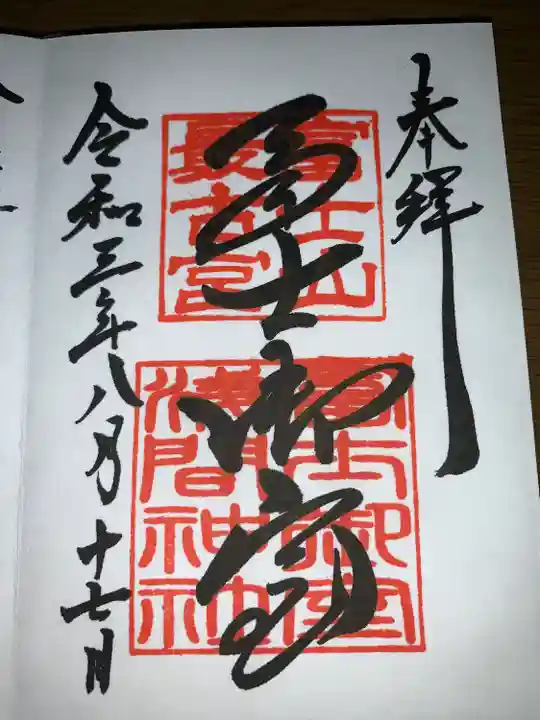 奉拝
冨士御室
富士山
最古宮
冨士御室
浅間神社
令和三年八月十七日